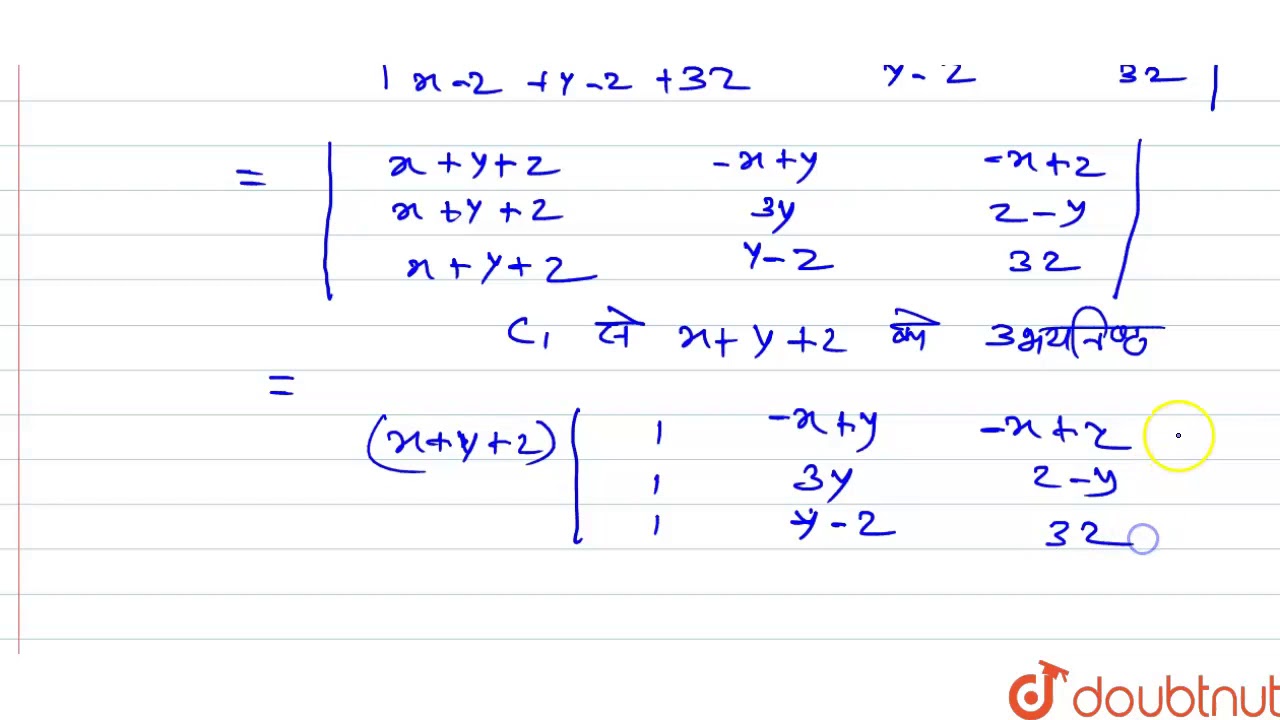 | x - z + y - z + 3z y - z 3z |
= | x + y + z -x + y -x + z |
| x + y + z 3y z - y |
| x + y + z y - z 3z |
C₁ से x + y + z को उभयनिष्ठ
=
(x + y + z) | 1 -x + y -x + z
| 1 3y z - y
| 1 y - z 3z
doubtnut